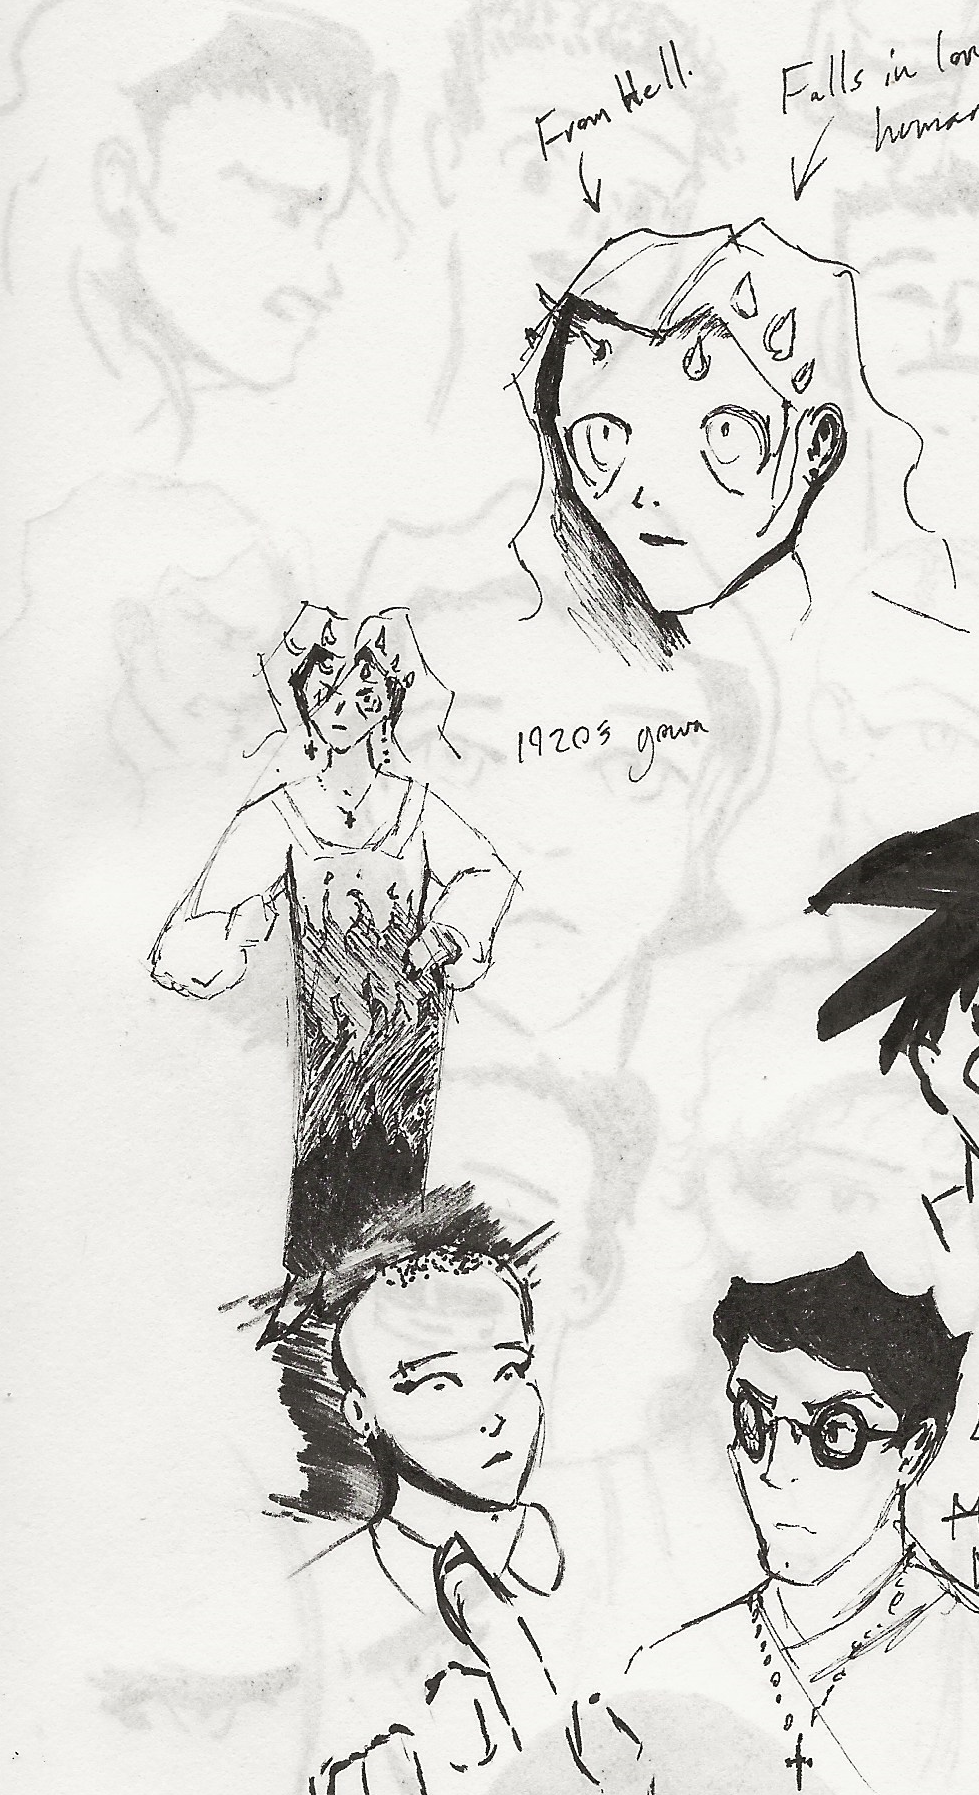 From Hell.
Falls in
human
1920s gown